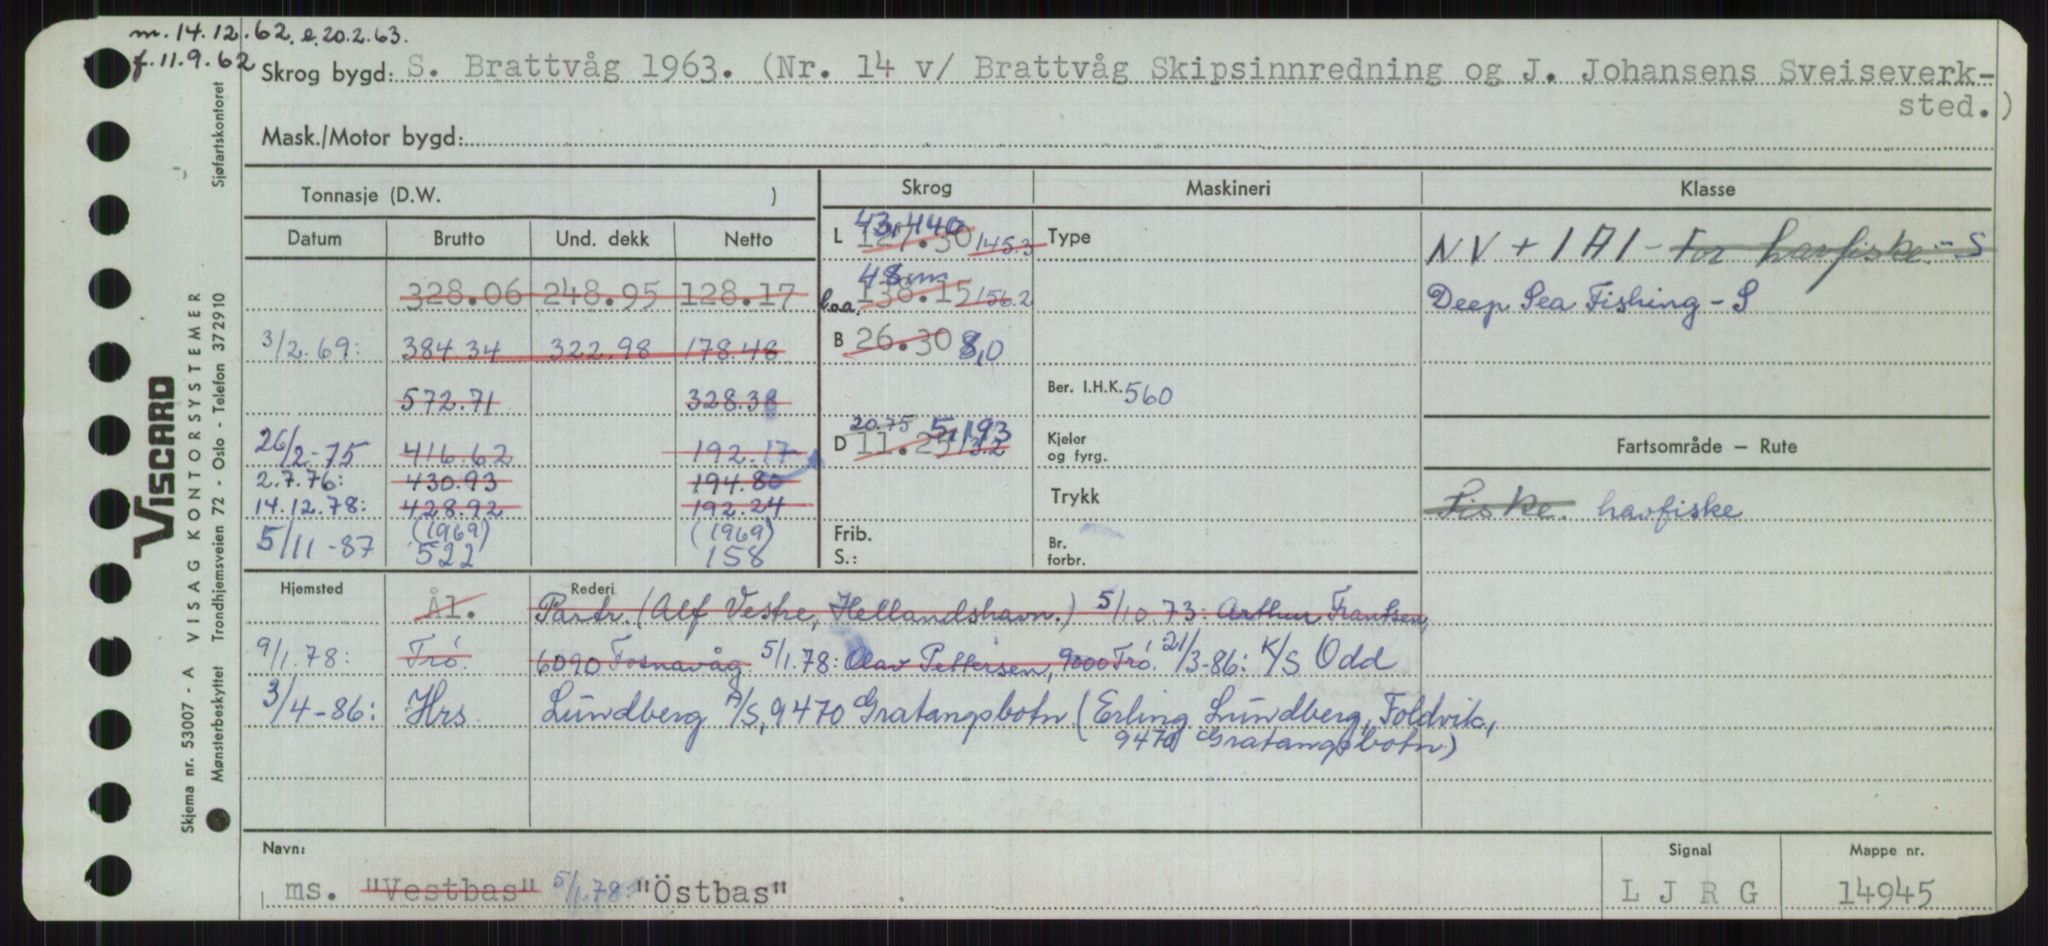 m. 14.12.62. e. 20.2.63.
f. 11.9.62
Skrog bygd: S. Brattvåg 1963. (Nr. 14 v/ Brattvåg Skipsinnredning og J. Johansens Sveiseverk-
sted.)
Mask./Motor bygd:
Tonnasje (D.W. ) Skrog Maskineri Klasse
Datum Brutto Und. dekk Netto
L 127.30 145.3 43,440 Type
NV + 1A1 - For havfiske - S
328.06 248.95 128.17
l.oa. 138.15 156.2 48 mm
Deep Sea Fishing - S
3/2.69: 384.34 322.98 178.48
B 26.30 8,0
572.71 328.38
Ber. I.H.K. 560
26/2-75 416.62 192.17
D 11.25 13.2 20.75 5,193
Kjeler
og fyrg.
Fartsområde – Rute
2.7.76: 430.93 194.80
Trykk
14.12.78: 428.92 192.24
Fiske. havfiske
(1969) (1969)
5/11-87 522 158
Frib.
S.:
Br.
forbr.
Hjemsted Rederi
Ål. Partr. (Alf Vestre, Hellandshavn.) 5/10.73: Arthur Frantsen,
9/1.78: Trö. 6090 Fosnavåg. 5/1.78: Olav Pettersen, 9000 Trö. 21/3-86: K/S Odd
3/4-86: Hrs. Lundberg A/S, 9470 Gratangsbotn (Erling Lundberg, Foldvik,
9470 Gratangsbotn)
Navn: Signal Mappe nr.
ms. "Vestbas" 5/1.78: "Östbas" L J R G 14945
VISCARD
Skjema nr. 53007 - A VISAG KONTORSYSTEMER Sjøfartskontoret
Mønsterbeskyttet Trondhjemsveien 72 - Oslo - Telefon 372910